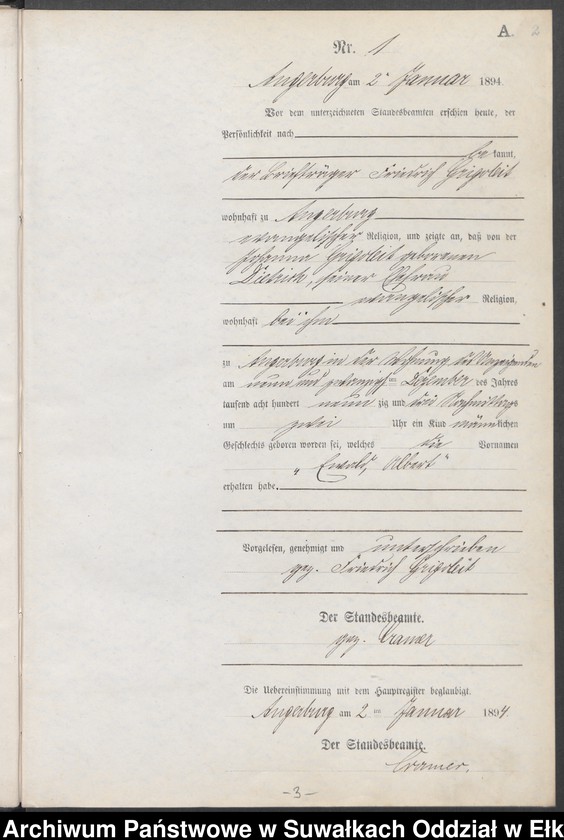 A. 2
Nr. 1
Angerburg am 2ᵗ Januar 1894.
Vor dem unterzeichneten Standesbeamten erschien heute, der
Persönlichkeit nach
be kannt,
der Briefträger Friedrich Grigoleit
wohnhaft zu Angerburg
evangelischer Religion, und zeigte an, daß von der
Johanna Grigoleit geborenen
Dietrich, seiner Ehefrau
evangelischer Religion,
wohnhaft bei ihm
zu Angerburg in der Wohnung des Anzeigenden
am neun und zwanzigsten Dezember des Jahres
tausend acht hundert neun zig und drei Nachmittags
um zwei Uhr ein Kind männlichen
Geschlechts geboren worden sei, welches die Vornamen
„Ewald, Albert“
erhalten habe.
Vorgelesen, genehmigt und unterschrieben
gez. Friedrich Grigoleit
Der Standesbeamte.
gez. Cramer
Die Uebereinstimmung mit dem Hauptregister beglaubigt.
Angerburg am 2ten Januar 1894.
Der Standesbeamte.
Cramer.
-3-
Archiwum Państwowe w Suwałkach Oddział w Ełk